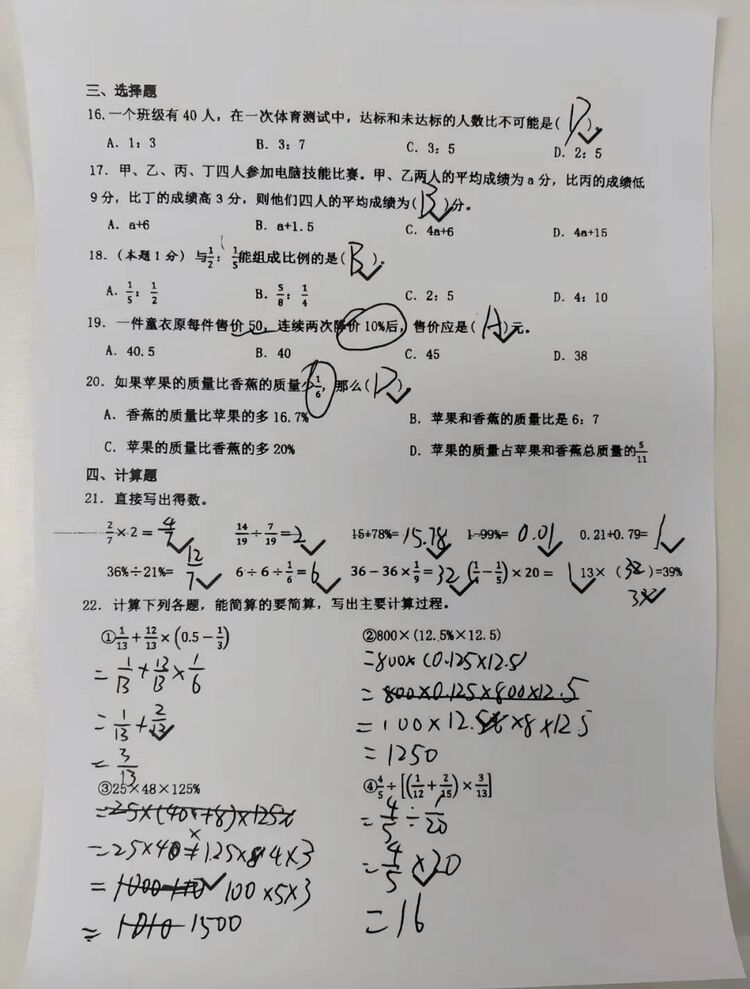 三、选择题
16. 一个班级有 40 人，在一次体育测试中，达标和未达标的人数比不可能是( D )。
A. 1：3 B. 3：7 C. 3：5 D. 2：5
17. 甲、乙、丙、丁四人参加电脑技能比赛。甲、乙两人的平均成绩为 a 分，比丙的成绩低
9 分，比丁的成绩高 3 分，则他们四人的平均成绩为( B )分。
A. a+6 B. a+1.5 C. 4a+6 D. 4a+15
18.（本题 1 分）与1/2：1/5能组成比例的是( B )。
A. 1/5：1/2 B. 5/8：1/4 C. 2：5 D. 4：10
19. 一件童衣原每件售价 50，连续两次降价 10%后，售价应是( A )元。
A. 40.5 B. 40 C. 45 D. 38
20. 如果苹果的质量比香蕉的质量少1/6，那么( D )
A. 香蕉的质量比苹果的多 16.7% B. 苹果和香蕉的质量比是 6：7
C. 苹果的质量比香蕉的多 20% D. 苹果的质量占苹果和香蕉总质量的5/11
四、计算题
21. 直接写出得数。
2/7×2= 4/7 14/19÷7/19= 2 15+78%= 15.78 1-99%= 0.01 0.21+0.79= 1
36%÷21%= 12/7 6÷6÷1/6= 6 36-36×1/9= 32 (1/4-1/5)×20= 1 13×( )=39%
3%
22. 计算下列各题，能简算的要简算，写出主要计算过程。
①1/13+12/13×(0.5-1/3) ②800×(12.5%×12.5)
=1/13+12/13×1/6 =800×(0.125×12.5)
=800×0.125×800×12.5
=1/13+2/13 =100×12.5
=3/13 =1250
③25×48×125% ④4/5÷[(1/12+2/15)×3/13]
=25×(40+8)×125% =4/5÷1/20
=25×4×1.25×4×3 =4/5×20
=100×5×3 =16
=1500